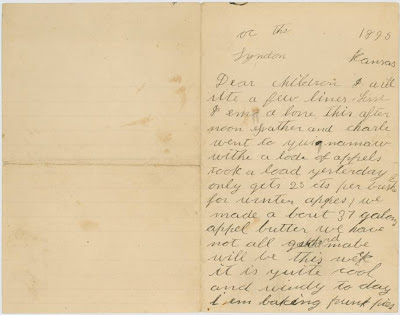 oc the 1893
Lyndon Kansas
Dear children I will
rite a few lines
I em a lone this after
noon father and charle
went to
withe a lode of appels
took a load yesterday
only gets 25 cts per bush
for winter appes, we
made a bout 37 galons
appel butter we have
not all mabe
will be this wek
it is quite cool
and windy to day
i em baking punk pies